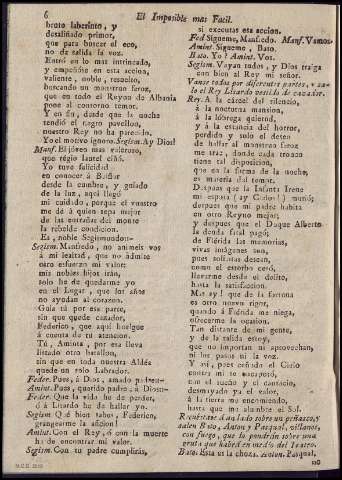 6
El Imposible mas Facil.
bruto laberinto, y
desaliñado primor,
que para buscar el eco,
no da salida la voz.
Entró en lo mas intrincado,
y empeñóse en esta accion,
valiente, noble, resuelto,
buscando un monstruo feroz,
que en todo el Reyno de Albania
pone al contorno temor.
Y en fin, desde que la noche
tendió el negro pavellon,
nuestro Rey no ha parecido.
Yo el motivo ignoro. Segism. Ay Dios!
Manf. El jóven mas valeroso,
que régio laurel ciñó.
Yo tuve felicidad
en conocer á
desde la cumbre, y guiado
de la luz, aquí llegó
mi cuidado, porque el vuestro
me dé á quien sepa mejor
de las entrañas del monte
la rebelde condicion.
Ea, noble Segismundo--
Segism. Manfredo, no animeis vos
á mi lealtad, que no admite
otro esfuerzo mi valor:
mis nobles hijos irán,
solo he de quedarme yo
en el Lugar, que los años
no ayudan al corazon.
Guia tú por esa parte,
sin que quede cazador,
Federico, que aquí huelgue
á cuenta de tu atencion.
Tú, Aminta, y por esa lleva
listado otro batallon,
sin que en toda nuestra Aldéa
quede un solo Labrador.
Feder. Pues, á Dios, amado padre--
Amint. Pues, querido padre, á Dios--
Feder. Que la vida he de perder,
ó á Lisardo he de hallar yo.
Segism. Qué bien sabes, Federico,
grangearme la aficion!
Amint. Con el Rey, ó con la muerte
ha de encontrar mi valor.
Segism. Con tu padre cumplirás,
si executas esa accion.
Fed Sigueme, Manfredo. Manf. Vamos.
Amint. Sigueme, Bato.
Bato. Yo? Amint. Vos.
Segism. Vayan todos, y Dios traiga
con bien al Rey mi señor.
Vanse todos por diferentes partes, y sale
el Rey Lisardo vestido de cazador.
Rey. A la cárcel del silencio,
á la nocturna mansion,
á la lóbrega quietud,
y á la estancia del horror,
perdido y solo el deseo
de hallar al monstruo feroz
me trae, donde cada tronco
tiene tal disposicion,
que en la forma de la noche,
es materia del temor.
Despues que la Infanta Irene
mi esposa (ay Carlos!) murió;
despues que mi padre habita
en otro Reyno mejor;
y despues que el Duque Alberto
la deuda fatal pagó;
de Flérida las memorias,
vivas imágenes son,
pues solicitan desean,
como el estorbo cesó,
llevarme desde el delito,
hasta la satisfaccion.
Mas ay! que de la fortuna
es otro nuevo rigor,
quando á Flérida me niega,
ofrecerme la ocasion.
Tan distante de mi gente,
y de la salida estoy,
que no importan ni aprovechan,
ni los pasos ni la voz.
Y así, pues
contra mí se
con el sueño y el cansacio,
desmayado ya el valor,
á la tierra me encomiendo,
hasta que me alumbre el Sol.
Recuéstase á un lado sobre un peñasco, y
salen Bato, Anton y Pasqual, villanos,
con fuego, que lo pondrán sobre una
gruta que habrá en medio del Teatro.
Bato. Esta es la choza. Anton. Pasqual,
no